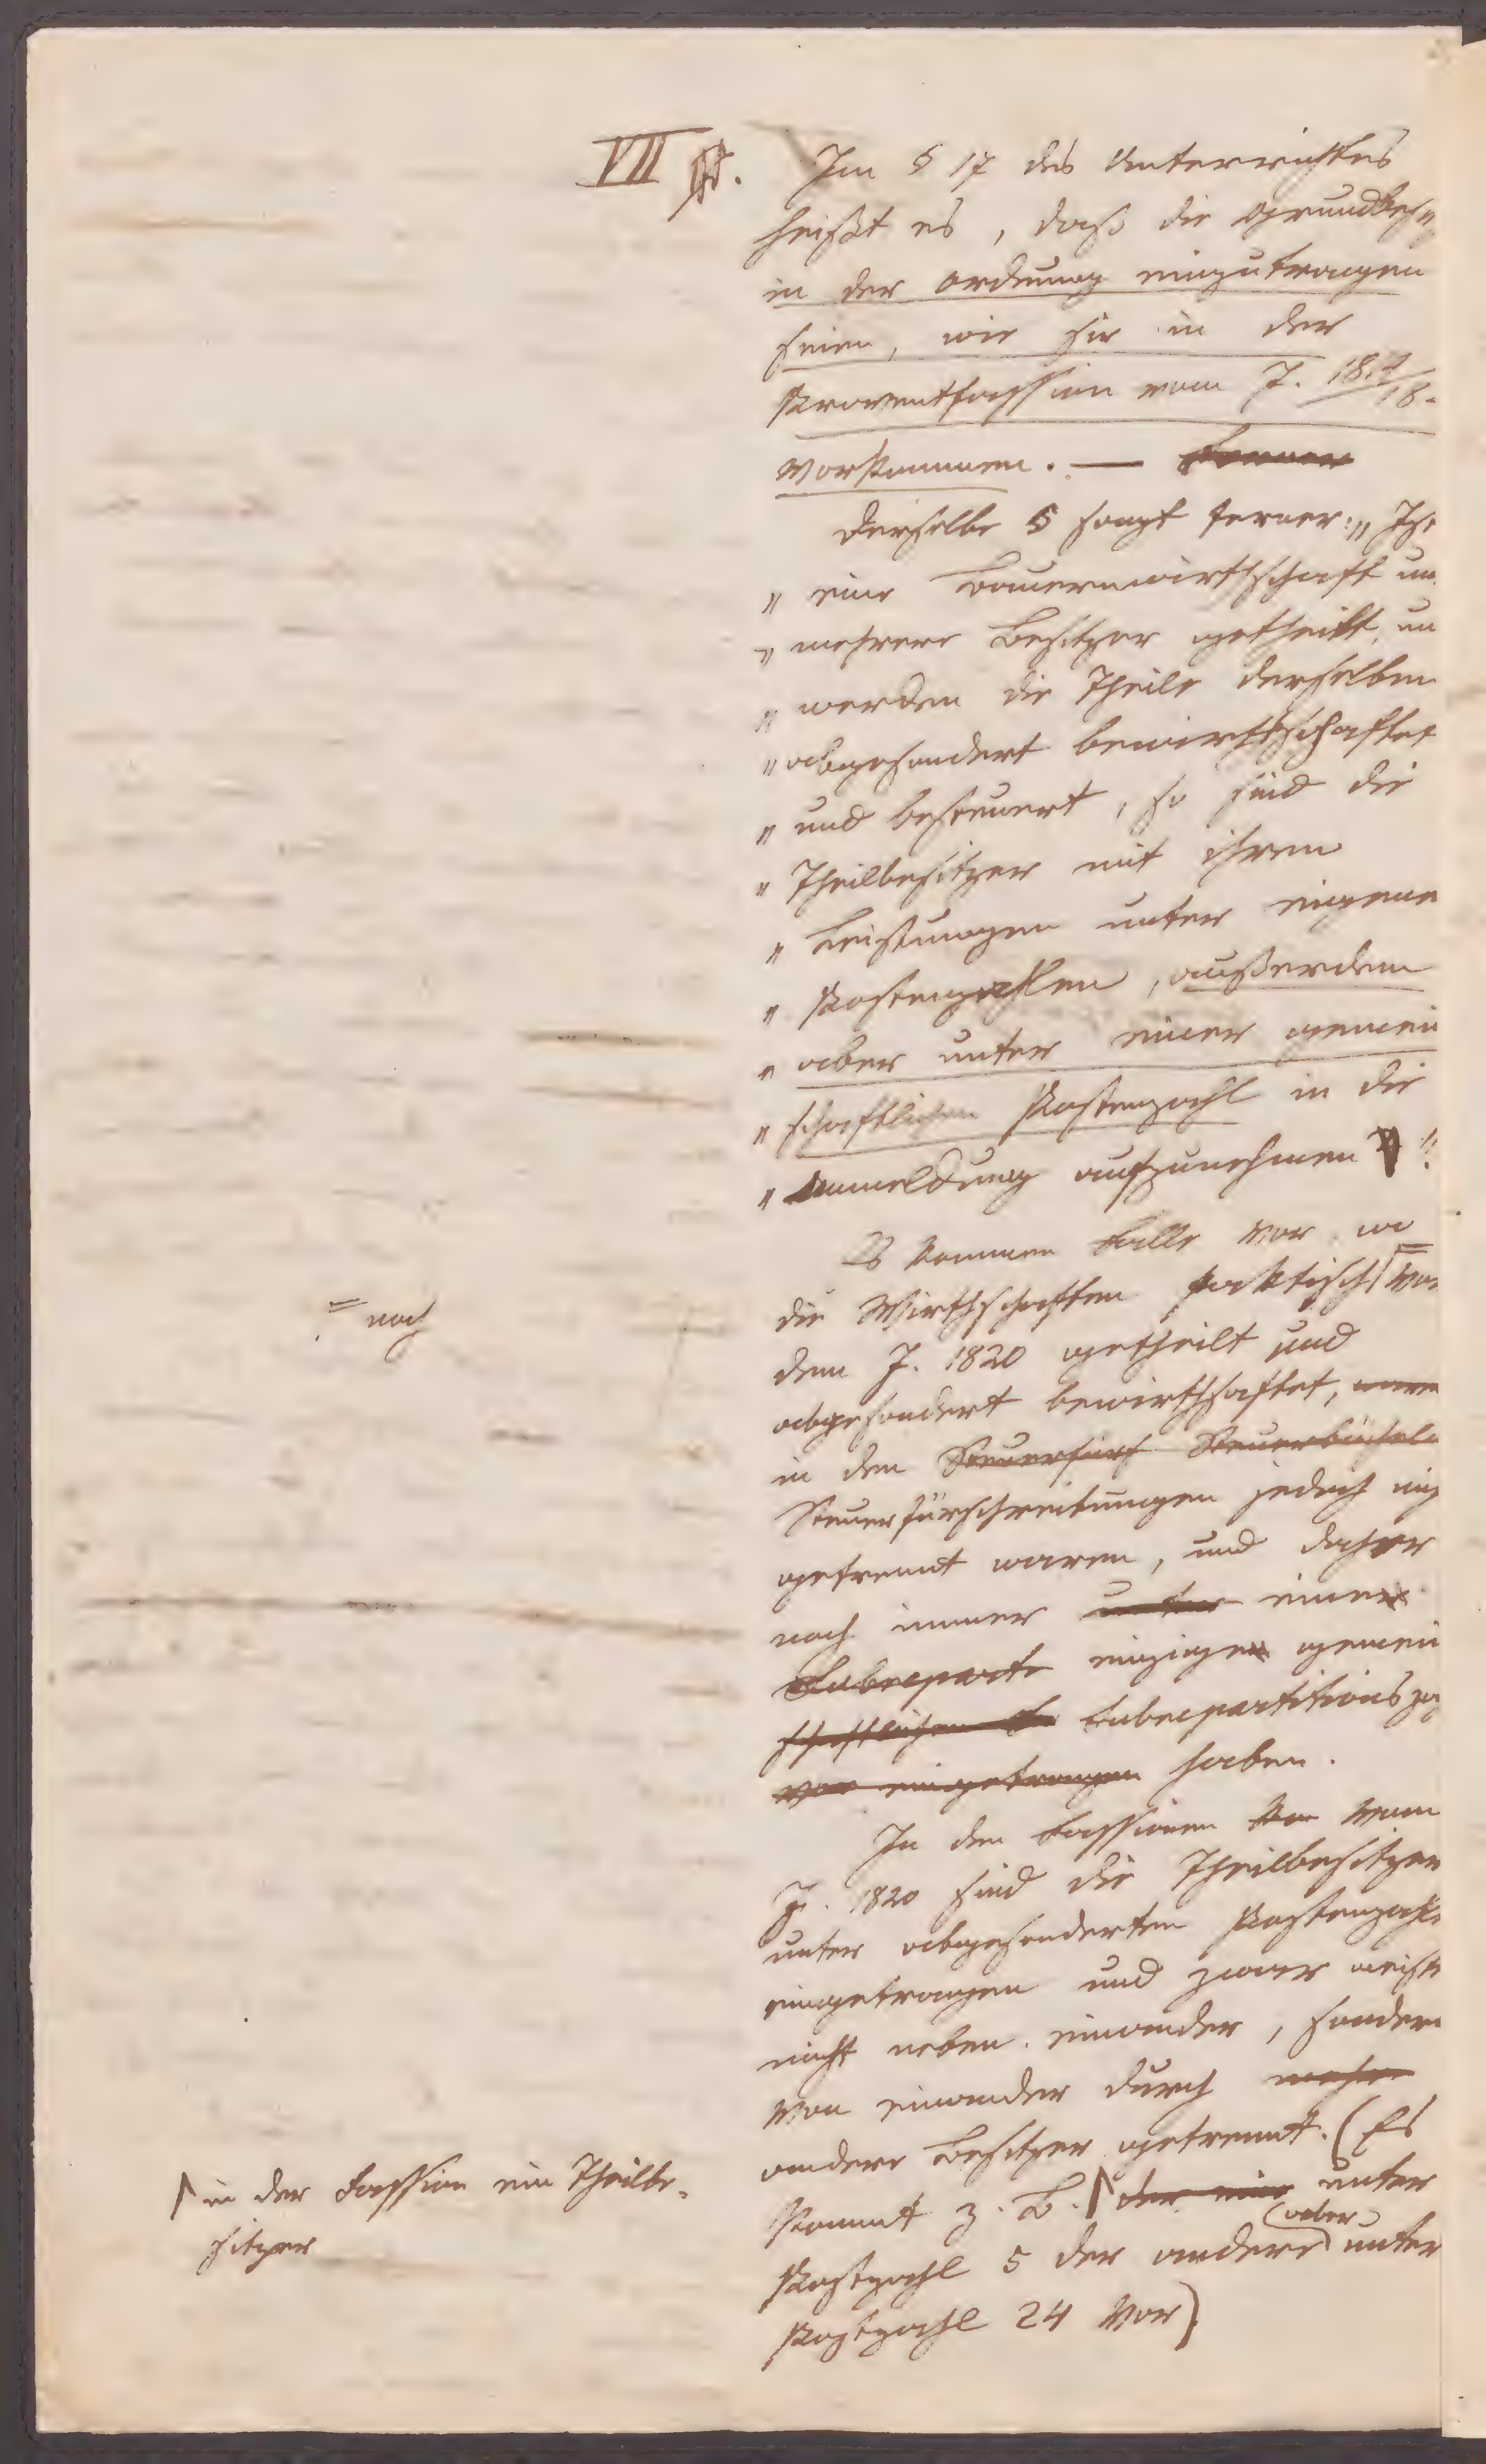 VII §.
Im § 17 des Unterrichtes
heißt es, daß die Grundbes
in der Ordnung einzutragen
seien, wie sie in der
Proventfassion vom J. 1819/18.
vorkommen. — Ferner
Derselbe § sagt ferner: „Ist
„ eine Bauernwirthschaft un
„ mehrere Besitzer getheilt, un
„ werden die Theile derselben
„ abgesondert bewirthschaftet
„ und besteuert, so sind die
„ Theilbesitzer mit ihren
„ Leistungen unter eigene
„ Postenzahlen, außerdem
„ aber unter einer gemein
„ schaftlichen Postenzahl in die
„ Anmeldung aufzunehmen"
Es kommen Fälle vor, wo
die Wirthschaften faktisch = vor
= nach
dem J. 1820 getheilt und
abgesondert bewirthschaftet,
in den Steuerfürs Steuerbücheln
Steuerfürschreibungen jedoch nic
getrennt waren, und daher
noch immer unter einer
Subreparti einzigen gemein
schaftlichen Subrepartitionsza
vor eingetragen haben.
In den Fassionen vom
J. 1820 sind die Theilbesitzer
unter abgesonderten Postenzahle
eingetragen und zwar meist
nicht neben einander, sondern
von einander durch mehre
andere Besitzer getrennt. (Es
kommt z. B. der eine unter
in der Fassion ein Theilbe-
sitzer
aber
Postzahl 5 der andere unter
Postzahl 24 vor)